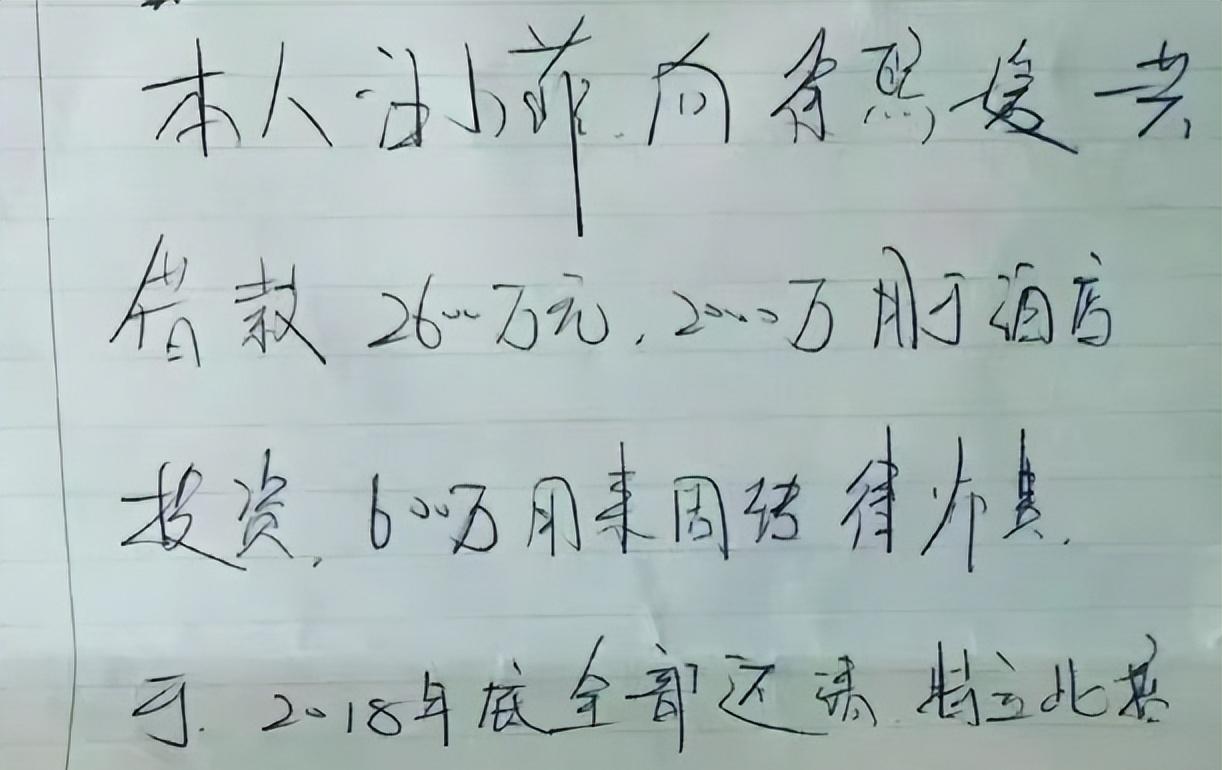 本人汪小菲向
借款2600万元,2000万用于酒店
投资,600万用来周转律师费.
于.2018年底全部还清.特立此